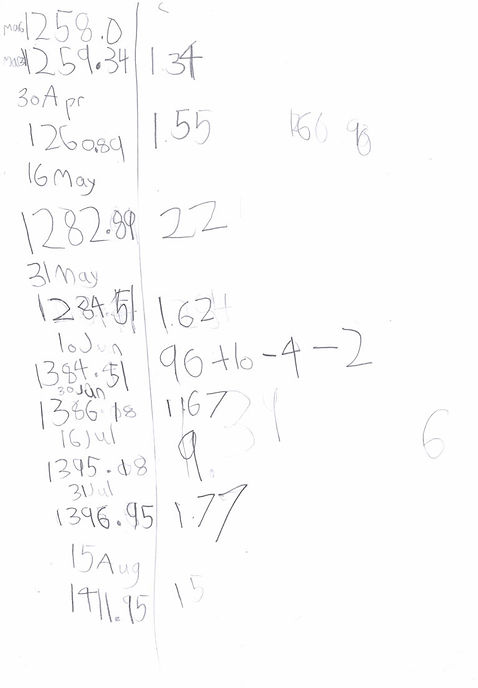 1258.0
1259.34 1.34
30 Apr
1260.89 1.55
16 May
1282.89 22
31 May
1284.51 1.62
10 Jun
1384.51 96 + 10 - 4 - 2
30 Jun
1386.18 1.67
16 Jul
1395.18 9.
31 Jul
1396.95 1.77
15 Aug
1411.95 15
6